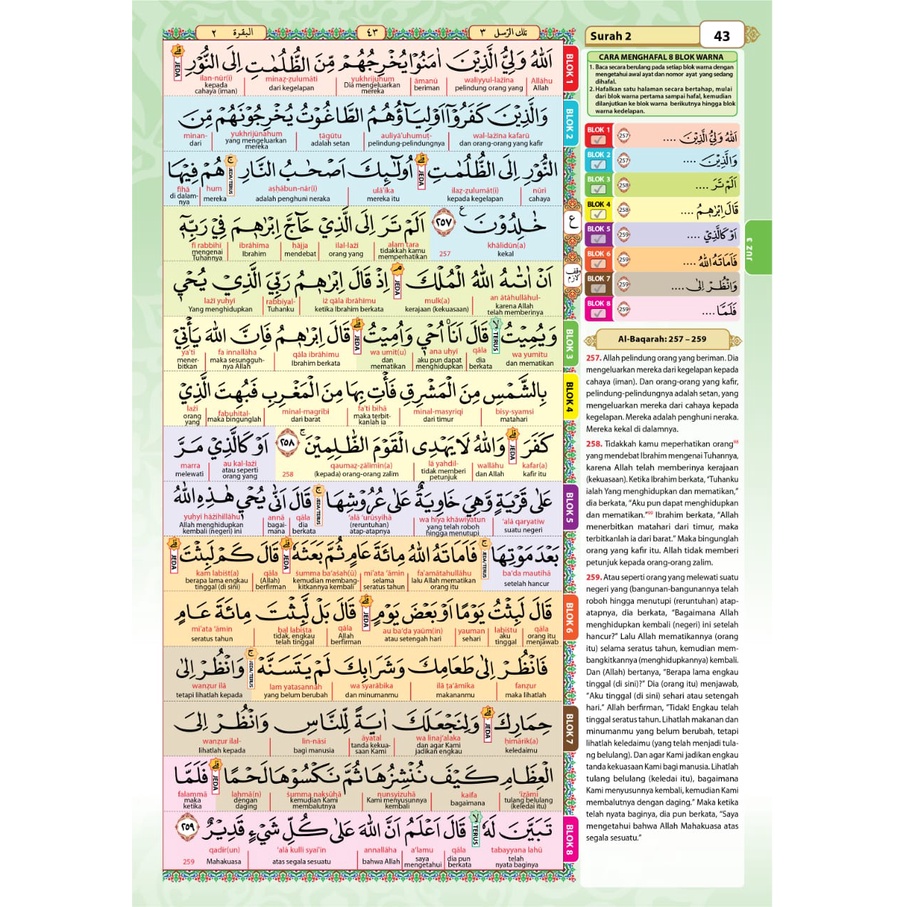 البقرة ٢
٤٣
تلك الرّسل ٣
Surah 2
43
اَللّٰهُ وَلِيُّ الَّذِيْنَ اٰمَنُوْا يُخْرِجُهُمْ مِّنَ الظُّلُمٰتِ اِلَى النُّوْرِ
Allāhu waliyyul-lażīna āmanū yukhrijuhum minaẓ-ẓulumāti ilan-nūr(i)
Allah pelindung orang yang beriman Dia mengeluarkan mereka dari kegelapan kepada cahaya (iman)
JEDA
BLOK 1
وَالَّذِيْنَ كَفَرُوْٓا اَوْلِيَاۤؤُهُمُ الطَّاغُوْتُ يُخْرِجُوْنَهُمْ مِّنَ
wal-lażīna kafarū auliyā'uhumuṭ- ṭāgūtu yukhrijūnahum minan-
dan orang-orang yang kafir pelindung-pelindungnya adalah setan yang mengeluarkan mereka dari
BLOK 2
النُّوْرِ اِلَى الظُّلُمٰتِ اُولٰۤىِٕكَ اَصْحٰبُ النَّارِ هُمْ فِيْهَا
nūri ilaẓ-ẓulumāt(i) ulā'ika aṣḥābun-nār(i) hum fīhā
cahaya kepada kegelapan mereka itu adalah penghuni neraka mereka di dalam-nya
خٰلِدُوْنَ ٢٥٧ اَلَمْ تَرَ اِلَى الَّذِيْ حَاۤجَّ اِبْرٰهٖمَ فِيْ رَبِّهٖٓ
khālidūn(a) 257 alam tara ilal-lażī ḥājja ibrāhīma fī rabbihī
kekal tidakkah kamu memperhatikan orang yang mendebat Ibrahim mengenai Tuhannya
اَنْ اٰتٰىهُ اللّٰهُ الْمُلْكَ اِذْ قَالَ اِبْرٰهٖمُ رَبِّيَ الَّذِيْ يُحْيٖ
an ātāhullāhul- mulk(a) iż qāla ibrāhīmu rabbiyal- lażī yuḥyī
karena Allah telah memberinya kerajaan (kekuasaan) ketika Ibrahim berkata Tuhanku Yang menghidupkan
وَيُمِيْتُ قَالَ اَنَا۠ اُحْيٖ وَاُمِيْتُ قَالَ اِبْرٰهٖمُ فَاِنَّ اللّٰهَ يَأْتِيْ
wa yumītu qāla ana uḥyī wa umīt(u) qāla ibrāhīmu fa innallāha ya'tī
dan mematikan dia berkata aku pun dapat menghidupkan dan mematikan Ibrahim berkata maka sesungguh-nya Allah mener-bitkan
BLOK 3
بِالشَّمْسِ مِنَ الْمَشْرِقِ فَأْتِ بِهَا مِنَ الْمَغْرِبِ فَبُهِتَ الَّذِيْ
bisy-syamsi minal-masyriqi fa'ti bihā minal-magribi fabuhital- lażī
matahari dari timur maka terbit-kanlah ia dari barat maka bingunglah orang yang
BLOK 4
كَفَرَ وَاللّٰهُ لَا يَهْدِى الْقَوْمَ الظّٰلِمِيْنَ ٢٥٨ اَوْ كَالَّذِيْ مَرَّ
kafar(a) wallāhu lā yahdil- qaumaẓ-ẓālimīn(a) 258 au kal-lażī marra
kafir itu dan Allah tidak memberi petunjuk (kepada) orang-orang zalim atau seperti orang yang melewati
عَلٰى قَرْيَةٍ وَّهِيَ خَاوِيَةٌ عَلٰى عُرُوْشِهَا قَالَ اَنّٰى يُحْيٖ هٰذِهِ اللّٰهُ
'alā qaryatiw wa hiya khāwiyatun 'alā 'urūsyihā qāla annā yuḥyī hāżihillāhu
suatu negeri yang telah roboh hingga menutupi (reruntuhan) atap-atapnya dia berkata bagai-mana Allah menghidupkan kembali (negeri) ini
BLOK 5
بَعْدَ مَوْتِهَا فَاَمَاتَهُ اللّٰهُ مِائَةَ عَامٍ ثُمَّ بَعَثَهٗ قَالَ كَمْ لَبِثْتَ
ba'da mautihā fa'amātahullāhu mi'ata 'āmin ṡumma ba'aṡah(ū) qāla kam labiṡt(a)
setelah hancur lalu Allah mematikan orang itu selama seratus tahun kemudian membang-kitkannya kembali (Allah) berfirman berapa lama engkau tinggal (di sini)
قَالَ لَبِثْتُ يَوْمًا اَوْ بَعْضَ يَوْمٍ قَالَ بَلْ لَّبِثْتَ مِائَةَ عَامٍ
qāla labiṡtu yauman au ba'ḍa yaūm(in) qāla bal labiṡta mi'ata 'āmin
orang itu menjawab aku tinggal sehari atau setengah hari Allah berfirman tidak, engkau telah tinggal seratus tahun
BLOK 6
فَانْظُرْ اِلٰى طَعَامِكَ وَشَرَابِكَ لَمْ يَتَسَنَّهْ وَانْظُرْ اِلٰى
fanẓur ilā ṭa'āmika wa syarābika lam yatasannah wanẓur ilā
maka lihatlah makananmu dan minumanmu yang belum berubah tetapi lihatlah kepada
حِمَارِكَ وَلِنَجْعَلَكَ اٰيَةً لِّلنَّاسِ وَانْظُرْ اِلَى
ḥimārik(a) wa linaj'alaka āyatal lin-nāsi wanẓur ilal-
keledaimu dan agar Kami jadikan engkau tanda kekua-saan Kami bagi manusia lihatlah kepada
BLOK 7
الْعِظَامِ كَيْفَ نُنْشِزُهَا ثُمَّ نَكْسُوْهَا لَحْمًا فَلَمَّا
'iẓāmi kaifa nunsyizuhā ṡumma naksūhā laḥmā(n) falammā
tulang belulang (keledai itu) bagaimana Kami menyusunnya kembali kemudian Kami membalutnya dengan daging maka ketika
تَبَيَّنَ لَهٗ قَالَ اَعْلَمُ اَنَّ اللّٰهَ عَلٰى كُلِّ شَيْءٍ قَدِيْرٌ ٢٥٩
tabayyana lahū qāla a'lamu annallāha 'alā kulli syai'in qadīr(un) 259
telah nyata baginya dia pun berkata saya mengetahui bahwa Allah atas segala sesuatu Mahakuasa
BLOK 8
CARA MENGHAFAL 8 BLOK WARNA
1. Baca secara berulang pada setiap blok warna dengan mengetahui awal ayat dan nomor ayat yang sedang dihafal.
2. Hafalkan satu halaman secara bertahap, mulai dari blok warna pertama sampai hafal, kemudian dilanjutkan ke blok warna berikutnya hingga blok warna kedelapan.
BLOK 1 257 اَللّٰهُ وَلِيُّ الَّذِيْنَ ....
BLOK 2 257 وَالَّذِيْنَ ....
BLOK 3 258 اَلَمْ تَرَ ....
BLOK 4 258 قَالَ اِبْرٰهٖمُ ....
BLOK 5 259 اَوْ كَالَّذِيْ ....
BLOK 6 259 فَاَمَاتَهُ اللّٰهُ ....
BLOK 7 259 وَانْظُرْ اِلٰى ....
BLOK 8 259 فَلَمَّا ....
JUZ 3
Al-Baqarah: 257 – 259
257. Allah pelindung orang yang beriman. Dia
mengeluarkan mereka dari kegelapan kepada
cahaya (iman). Dan orang-orang yang kafir,
pelindung-pelindungnya adalah setan, yang
mengeluarkan mereka dari cahaya kepada
kegelapan. Mereka adalah penghuni neraka.
Mereka kekal di dalamnya.
258. Tidakkah kamu meperhatikan orang
yang mendebat Ibrahim mengenai Tuhannya,
karena Allah telah memberinya kerajaan
(kekuasaan). Ketika Ibrahim berkata, "Tuhanku
ialah Yang menghidupkan dan mematikan,"
dia berkata, "Aku pun dapat menghidupkan
dan mematikan." Ibrahim berkata, "Allah
menerbitkan matahari dari timur, maka
terbitkanlah ia dari barat." Maka bingunglah
orang yang kafir itu. Allah tidak memberi
petunjuk kepada orang-orang zalim.
259. Atau seperti orang yang melewati suatu
negeri yang (bangunan-bangunannya telah
roboh hingga menutupi (reruntuhan) atap-
atapnya, dia berkata, "Bagaimana Allah
menghidupkan kembali (negeri) ini setelah
hancur?" Lalu Allah mematikannya (orang
itu) selama seratus tahun, kemudian mem-
bangkitkannya (menghidupkannya) kembali.
Dan (Allah) bertanya, "Berapa lama engkau
tinggal (di sini)?" Dia (orang itu) menjawab,
"Aku tinggal (di sini) sehari atau setengah
hari." Allah berfirman, "Tidak! Engkau telah
tinggal seratus tahun. Lihatlah makanan dan
minumanmu yang belum berubah, tetapi
lihatlah keledaimu (yang telah menjadi tula-
ng belulang). Dan agar Kami jadikan engkau
tanda kekuasaan Kami bagi manusia. Lihatlah
tulang belulang (keledai itu), bagaimana
Kami menyusunnya kembali, kemudian Kami
membalutnya dengan daging." Maka ketika
telah nyata baginya, dia pun berkata, "Saya
mengetahui bahwa Allah Mahakuasa atas
segala sesuatu."